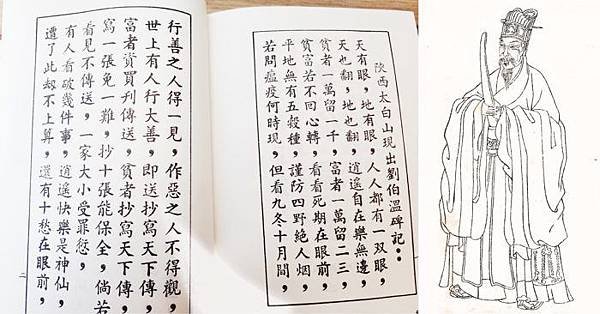 陝西太白山現出劉伯溫碑記：
天有眼，地有眼，人人都有一双眼，
天也翻，地也翻，逍遙自在樂無邊，
貧者一萬留一千，富者一萬留二三，
貧富若不回心轉，看看死期在眼前，
平地無有五穀種，謹防四野絕人烟，
若問瘟疫何時現，但看九冬十月間，
行善之人得一見，作惡之人不得觀，
世上有人行大善，即送抄寫天下傳，
富者資買刋傳送，貧者抄寫天下傳，
寫一張免一難，抄十張能保全，倘若
看見不傳送，一家大小受罪愆，
有人看破幾件事，逍遙快樂是神仙，
遭了此刼不上算，還有十愁在眼前，
二